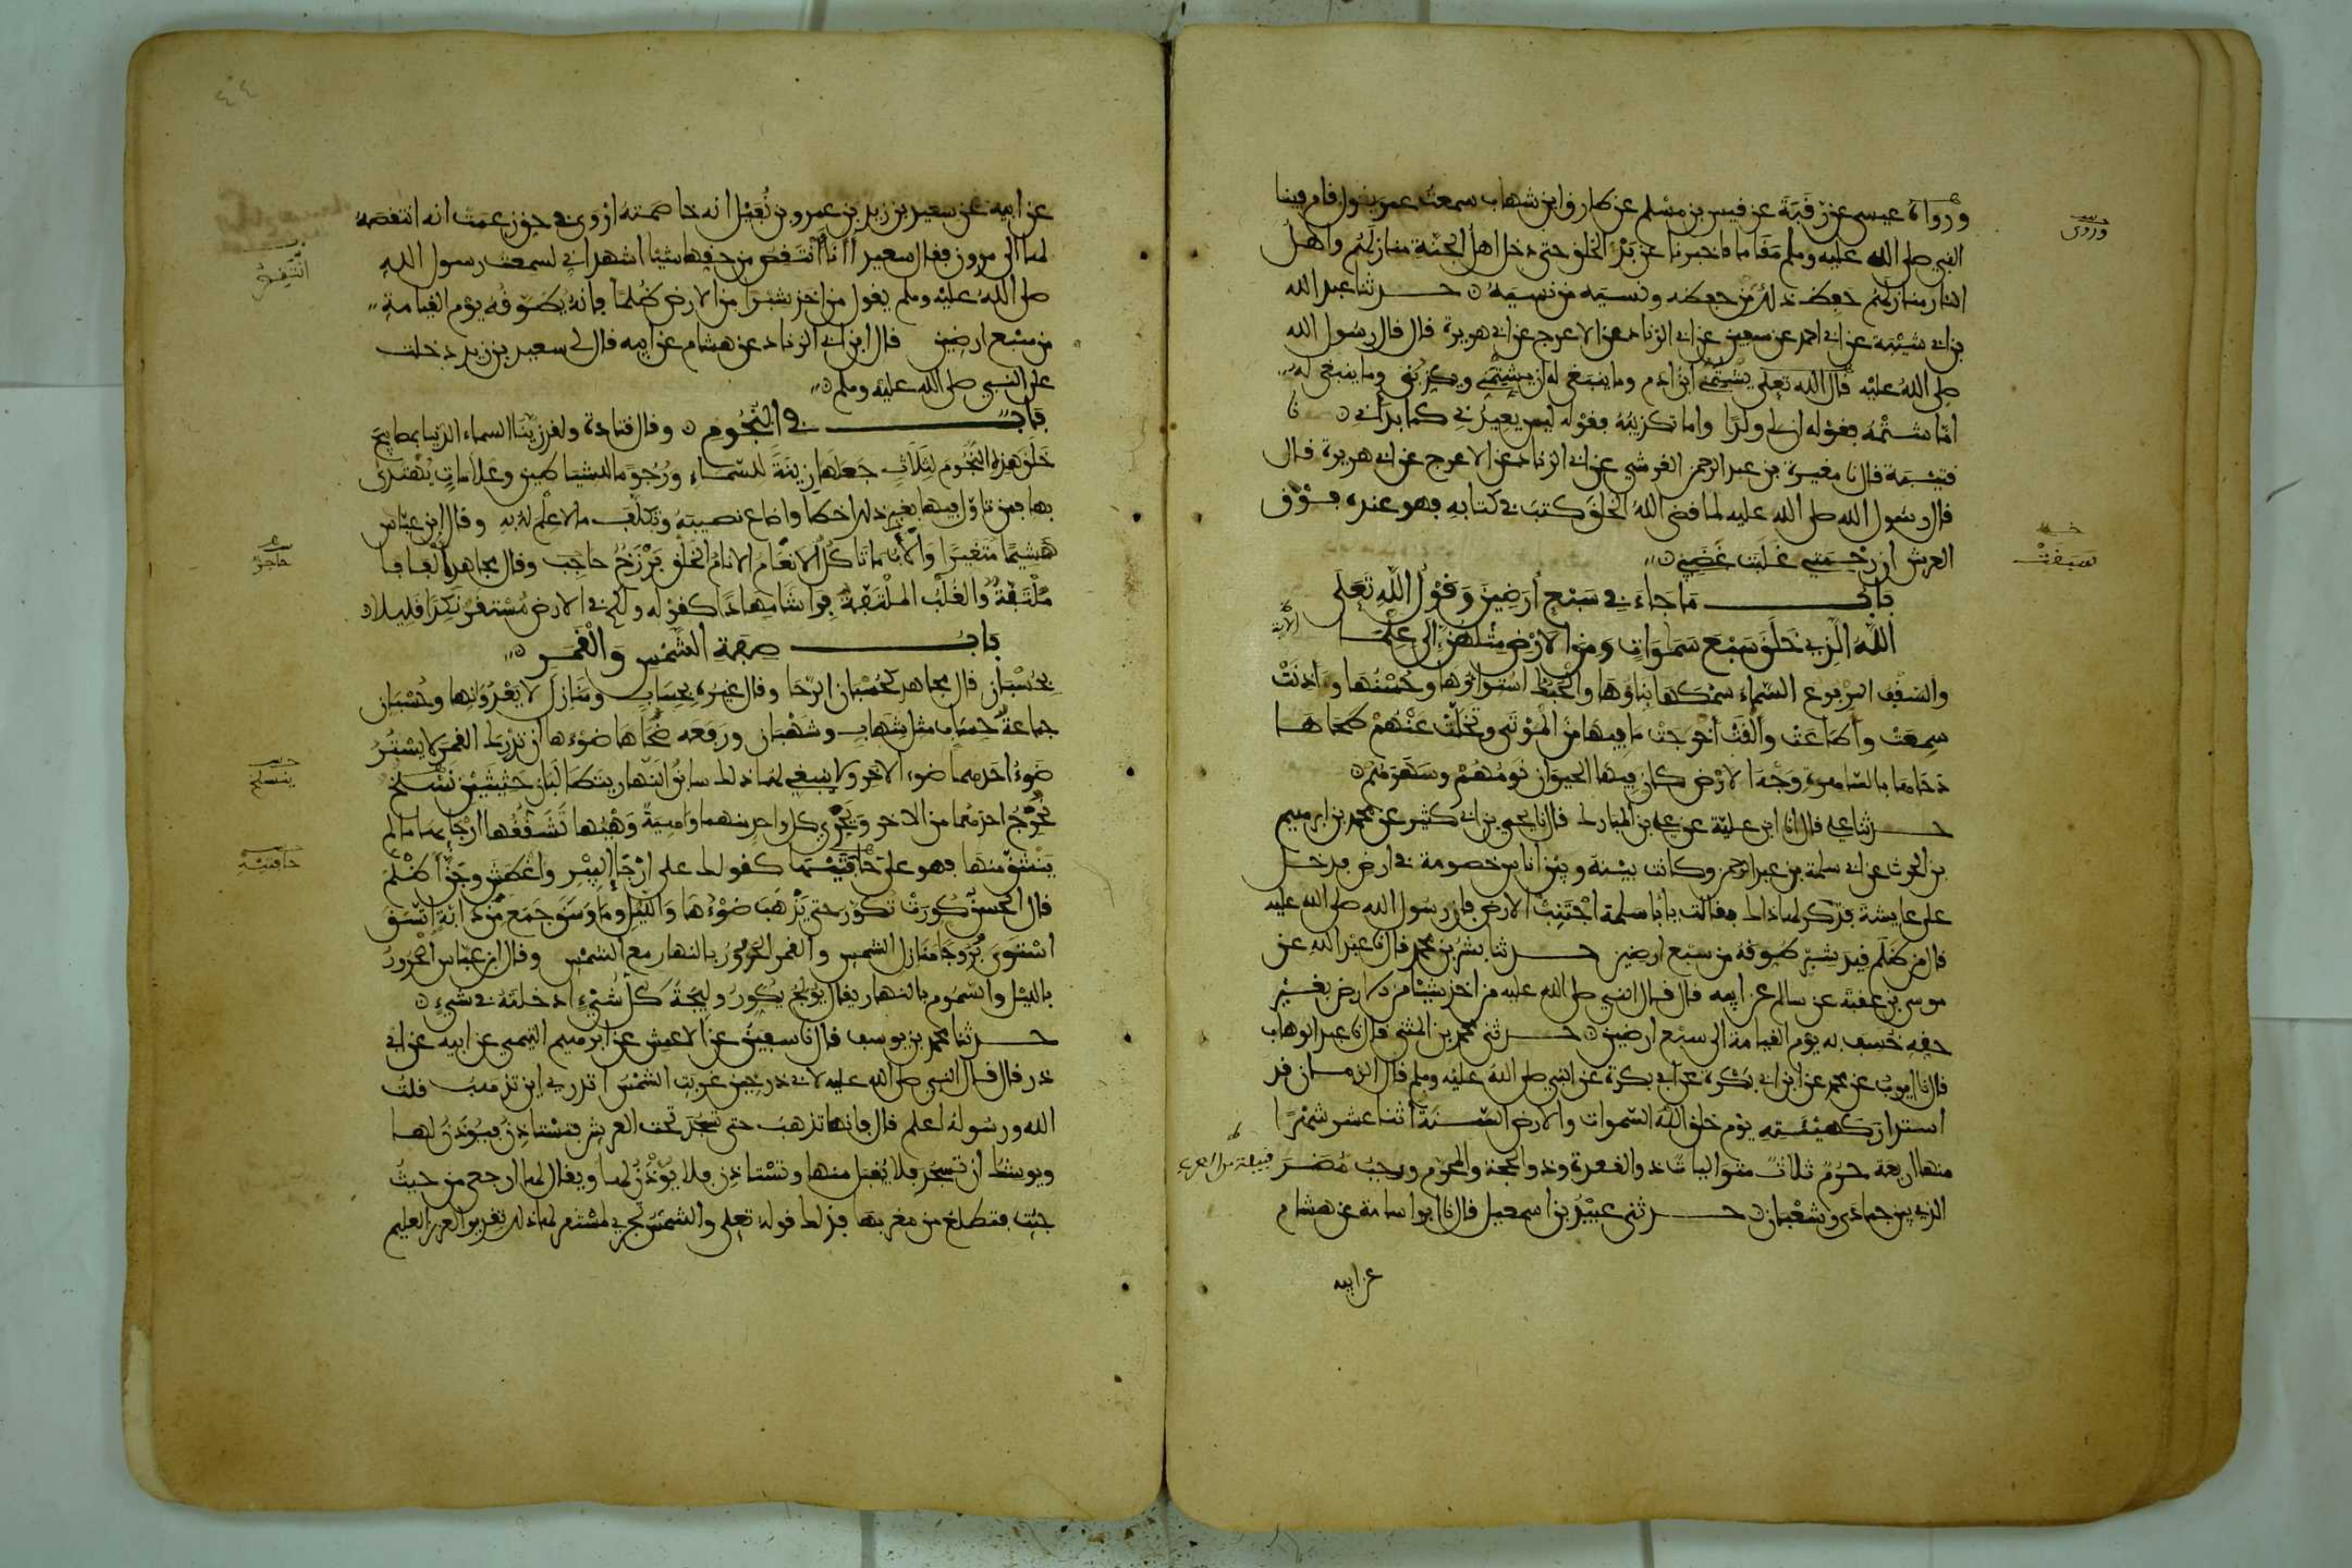 ورواه عيسى عن رقبة عن قيس بن مسلم عن طارق ابن شهاب سمعت عمر يقول قام فينا
وروى
النبي صلى الله عليه وسلم مقاما فاخبرنا عن بدء الخلق حتى دخل اهل الجنة منازلهم واهل
النار منازلهم حفظ ذلك من حفظه ونسيه من نسيه حدثنا عبد الله
بن ابي شيبة عن ابي احمد عن سفين عن ابي الزناد عن الاعرج عن ابي هريرة قال قال رسول الله
صلى الله عليه قال الله تعلى يشتمني ابن ادم وما ينبغي له ان يشتمني ويكذبني وما ينبغي له
اما شتمه فقوله ان لي ولدا واما تكذيبه فقوله ليس يعيدني كما بدأني نا
قتيبة قال نا مغيرة بن عبد الرحمن القرشي عن ابي الزناد عن الاعرج عن ابي هريرة قال
قال رسول الله صلى الله عليه لما قضى الله الخلق كتب في كتابه فهو عنده فوق
العرش ان رحمتي غلبت غضبي
سبقت
باب ما جاء في سبع ارضين وقول الله تعلى
الله الذي خلق سبع سموات ومن الارض مثلهن الى علما
الاية
والسقف المرفوع السماء سمكها بناؤها والحبك استواؤها وحسنها واذنت
سمعت واطاعت والقت اخرجت ما فيها من الموتى وتخلت عنهم طحاها
دحاها بالساهرة وجه الارض كان فيها الحيوان نومهم وسهرهم
حدثنا علي قال انا ابن علية عن علي بن المبارك قال نا يحيى بن ابي كثير عن محمد بن ابرهيم
بن الحرث عن ابي سلمة بن عبد الرحمن وكانت بينه وبين اناس خصومة في ارض فدخل
على عايشة فذكر لها ذلك فقالت يا ابا سلمة اجتنب الارض فان رسول الله صلى الله عليه
قال من ظلم قيد شبر طوقه من سبع ارضين حدثنا بشر بن محمد قال نا عبد الله عن
موسى بن عقبة عن سالم عن ابيه قال قال النبي صلى الله عليه من اخذ شيئا من الارض بغير
حقه خسف به يوم القيامة الى سبع ارضين حدثني محمد بن المثنى قال نا عبد الوهاب
قال نا ايوب عن محمد عن ابن ابي بكرة عن ابي بكرة عن النبي صلى الله عليه وسلم قال الزمان قد
استدار كهيئته يوم خلق الله السموات والارض السنة اثنا عشر شهرا
منها اربعة حرم ثلاث متواليات ذو القعدة وذو الحجة والمحرم ورجب مضر
قبيلة من العرب
الذي بين جمادى وشعبان حدثني عبيد بن اسمعيل قال نا ابو اسامة عن هشام
عن ابيه
٤٤
عن ابيه عن سعيد بن زيد بن عمرو بن نفيل انه خاصمته اروى في حق زعمت انه انتقصه
لها الى مروان فقال سعيد أأنا أنتقص من حقها شيئا اشهد اني لسمعت رسول الله
انتقص
صلى الله عليه وسلم يقول من اخذ شبرا من الارض ظلما فانه يطوقه يوم القيامة
من سبع ارضين قال ابن ابي الزناد عن هشام عن ابيه قال لي سعيد بن زيد دخلت
على النبي صلى الله عليه وسلم
باب في النجوم وقال قتادة ولقد زينا السماء الدنيا بمصابيح
خلق هذه النجوم لثلاث جعلها زينة للسماء ورجوما للشياطين وعلامات يهتدى
بها فمن تاول فيها بغير ذلك اخطأ واضاع نصيبه وتكلف ما لا علم له به وقال ابن عباس
هشيما متغيرا والاب ما تاكل الانعام الانام الخلق برزخ حاجب وقال مجاهد الفافا
حاجز
ملتفة والغلب الملتفة فراشا مهادا كقوله ولكم في الارض مستقر نكدا قليلا
باب صفة الشمس والقمر
بحسبان قال مجاهد كحسبان الرحا وقال غيره بحساب ومنازل لا يعدوانها وحسبان
جماعة حساب مثل شهاب وشهبان ورفعه ضحاها ضوءها ان تدرك القمر لا يستر
ضوء احدهما ضوء الاخر ولا ينبغي لهما ذلك سابق النهار يتطالبان حثيثين نسلخ
ينسلخ
نخرج احدهما من الاخر ويجري كل واحد منهما واهية وهيها تشققها ارجايها ما لم
ينشق منها فهو على حافتيها كقولك على ارجاء البير واغطش وجن اظلم
حافتيه
قال الحسن كورت تكور حتى يذهب ضوءها والليل وما وسق جمع من دابة اتسق
استوى بروجا منازل الشمس والقمر الحرور بالنهار مع الشمس وقال ابن عباس الحرور
بالليل والسموم بالنهار يقال يولج يكور وليجة كل شيء ادخلته في شيء
حدثنا محمد بن يوسف قال نا سفين عن الاعمش عن ابرهيم التيمي عن ابيه عن ابي
ذر قال قال النبي صلى الله عليه لابي ذر حين غربت الشمس اتدري اين تذهب قلت
الله ورسوله اعلم قال فانها تذهب حتى تسجد تحت العرش فتستاذن فيؤذن لها
ويوشك ان تسجد فلا يقبل منها وتستاذن فلا يؤذن لها ويقال لها ارجعي من حيث
جئت فتطلع من مغربها فذلك قوله تعلى والشمس تجري لمستقر لها ذلك تقدير العزيز العليم